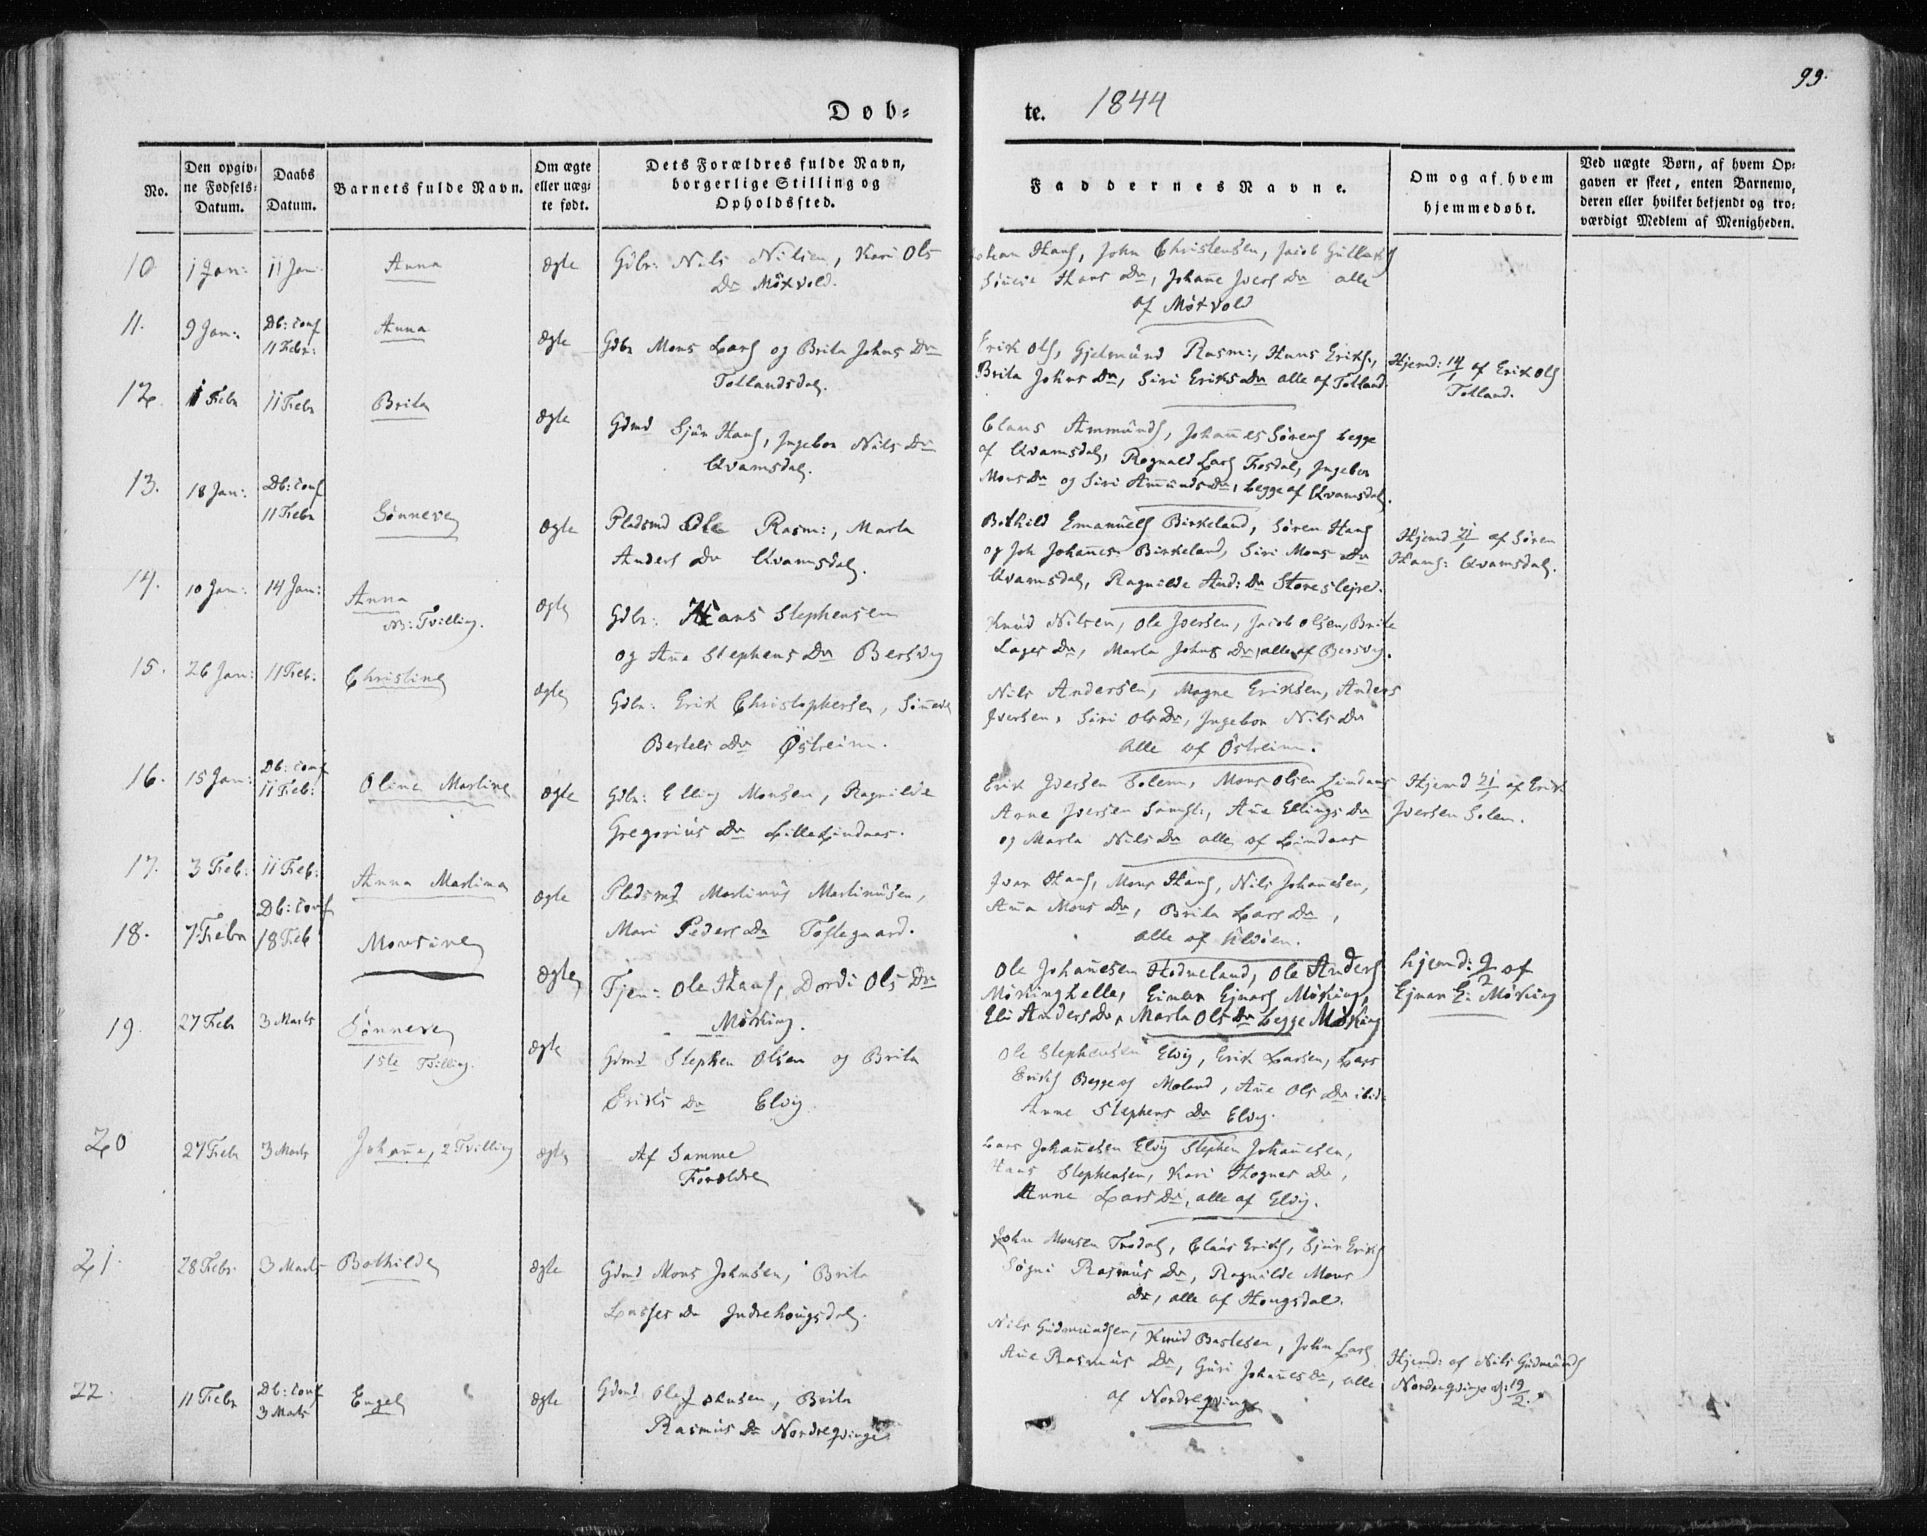 99.
Døb-
te. 1844
No.
Den opgiv-
ne Fødsels-
Datum.
Daabs
Datum.
Barnets fulde Navn.
Om ægte
eller uæg-
te født.
Dets Forældres fulde Navn,
borgerlige Stilling og
Opholdssted.
Faddernes Navne.
Om og af hvem
hjemmedøbt.
Ved uægte Børn, af hvem Op-
gaven er skeet, enten Barnemo-
deren eller hvilket bekjendt og tro-
værdigt Medlem af Menigheden.
10 1 Jan: 11 Jan Anna ægte Gdbr: Nils Nilsen, Kari Ols
Dr Mötvold.
Hans, John Christensen, Jacob
Hans Dr, Johañe Ivers Dr alle
af Mötvold
11. 9 Jan: Db: conf
11 Febr: Anna ægte Gdbr Mons Lars og Brita Johns Dr
Totlandsdal
Erik Ols, Gjelmund Rasm:, Hans Eriks,
Brita Johns Dr, Siri Eriks Dr alle af Totland
Hjemd: 14/1 af Erik Ols
Totland.
12 1 Febr 11 Febr Brita ægte Gdmd Sjur Hans, Ingebor Nils Dr
Kvamsdal.
Claus Ammunds, Johañes Sörens begge
af Kvamsdal, Rognald Lars Trosdal, Ingebor
Mons Dr og Siri Amunds Dr, begge af Kvamsdal.
13. 18 Jan: Db: conf
11 Febr Sönneve ægte Pladsmd Ole Rasm:, Marta
Anders Dr Kvamsdal.
Bothild Emanuels Birkeland, Sören Hans
og Joh Johañes Birkeland, Siri Mons Dr
Kvamsdal, Ragnilde And: Dr Storeslejre.
Hjemd 21/1 af Sören
Hans: Kvamsdal.
14. 10 Jan: 14 Jan: Anna
NB: Tvilling. ægte Gdbr: Hans Stephensen
og Aña Stephens Dr Bersvig
Knud Nilsen, Ole Iversen, Jacob Olsen, Brite
Lages Dr, Marta Johns Dr, alle af Bersvig.
15. 26 Jan: 11 Feb: Christine ægte Gdbr: Erik Christophersen, Siñeva
Bertels Dr Östreim.
Nils Andersen, Magne Eriksen, Anders
Iversen, Siri Ols Dr, Ingebor Nils Dr
alle af Östreim.
16. 15 Jan: Db: conf
11 Feb: Oline Martine ægte Gdbr: Elling Monsen, Ragnilde
Gregorius Dr Lille Lindaas.
Erik Iversen Solem, Mons Olsen Lindaas
Arne Iversen, Aña Ellings Dr
og Marta Nils Dr alle af Lindaas
Hjemd 21/1 af Erik
Iversen Solem.
17. 3 Feb: 11 Feb: Anna Martina ægte Pladsmd Martinus Martinusen,
Mari Peders Dr Toftegaard.
Ivar Hans, Mons Hans, Nils Johañesen,
Aña Mons Dr, Brita Lars Dr,
alle af Uldöen.
18. 7 Febr Db: conf
18 Feb Monsine ægte Tjen: Ole Hans, Dordi Ols Dr
Mörking.
Ole Johañesen Hodneland, Ole Anders
Mörkinghelle, Eimar Ejnars Mörking,
Eli Anders Dr, Marta Ols Dr begge Mörking
hjemd: 9/2 af
Ejnar E: Mörking
19. 27 Feb 3 Marts Sönneve
1ste Tvilling. ægte Gdmd Stephen Olsen og Brita
Eriks Dr Elvig
Ole Stephensen Elvig, Erik Larsen, Lars
Eriks Begge af Moland, Añe Ols Dr ibid:
Anne Stephens Dr Elvig.
20 27 Febr 3 Marts Johañe, 2 Tvilling ægte Af Samme
Forældre
Lars Johañesen Elvig Stephen Johañesen,
Hans Stephensen, Kari Hognes Dr,
Anne Lars Dr, alle af Elvig.
21. 28 Febr. 3 Marts Bothilde ægte Gdmd Mons Johnsen, Brita
Lasses Dr Indrehougsdal.
John Monsen Trodal, Claus Eriks, Sjur Eriks
Sögni Rasmus Dr, Ragnilde Mons
Dr, alle af Hougsdal.
22. 11 Febr Db: conf
3 Marts Engel ægte Gdmd Ole Johnsen, Brita
Rasmus Dr Nordreqvinge.
Nils Gudmundsen, Knud Bastesen, John Lars
Aña Rasmus Dr, Guri Johañes Dr, alle
af Nordreqvinge
Hjemd: af Nils Gudmunds
Nordreqvinge d: 19/2.